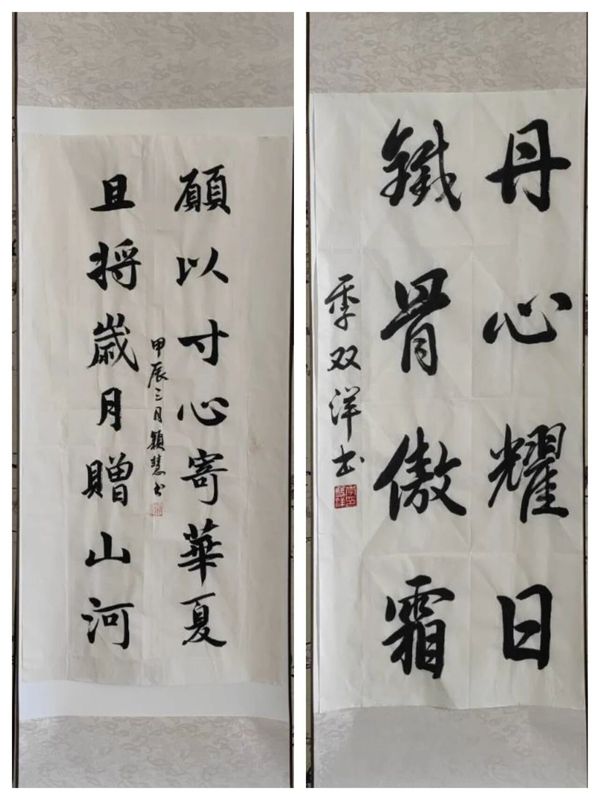 願以寸心寄華夏
且將歲月贈山河
甲辰三月穎慧書
丹心耀日
鐵骨傲霜
季双洋书